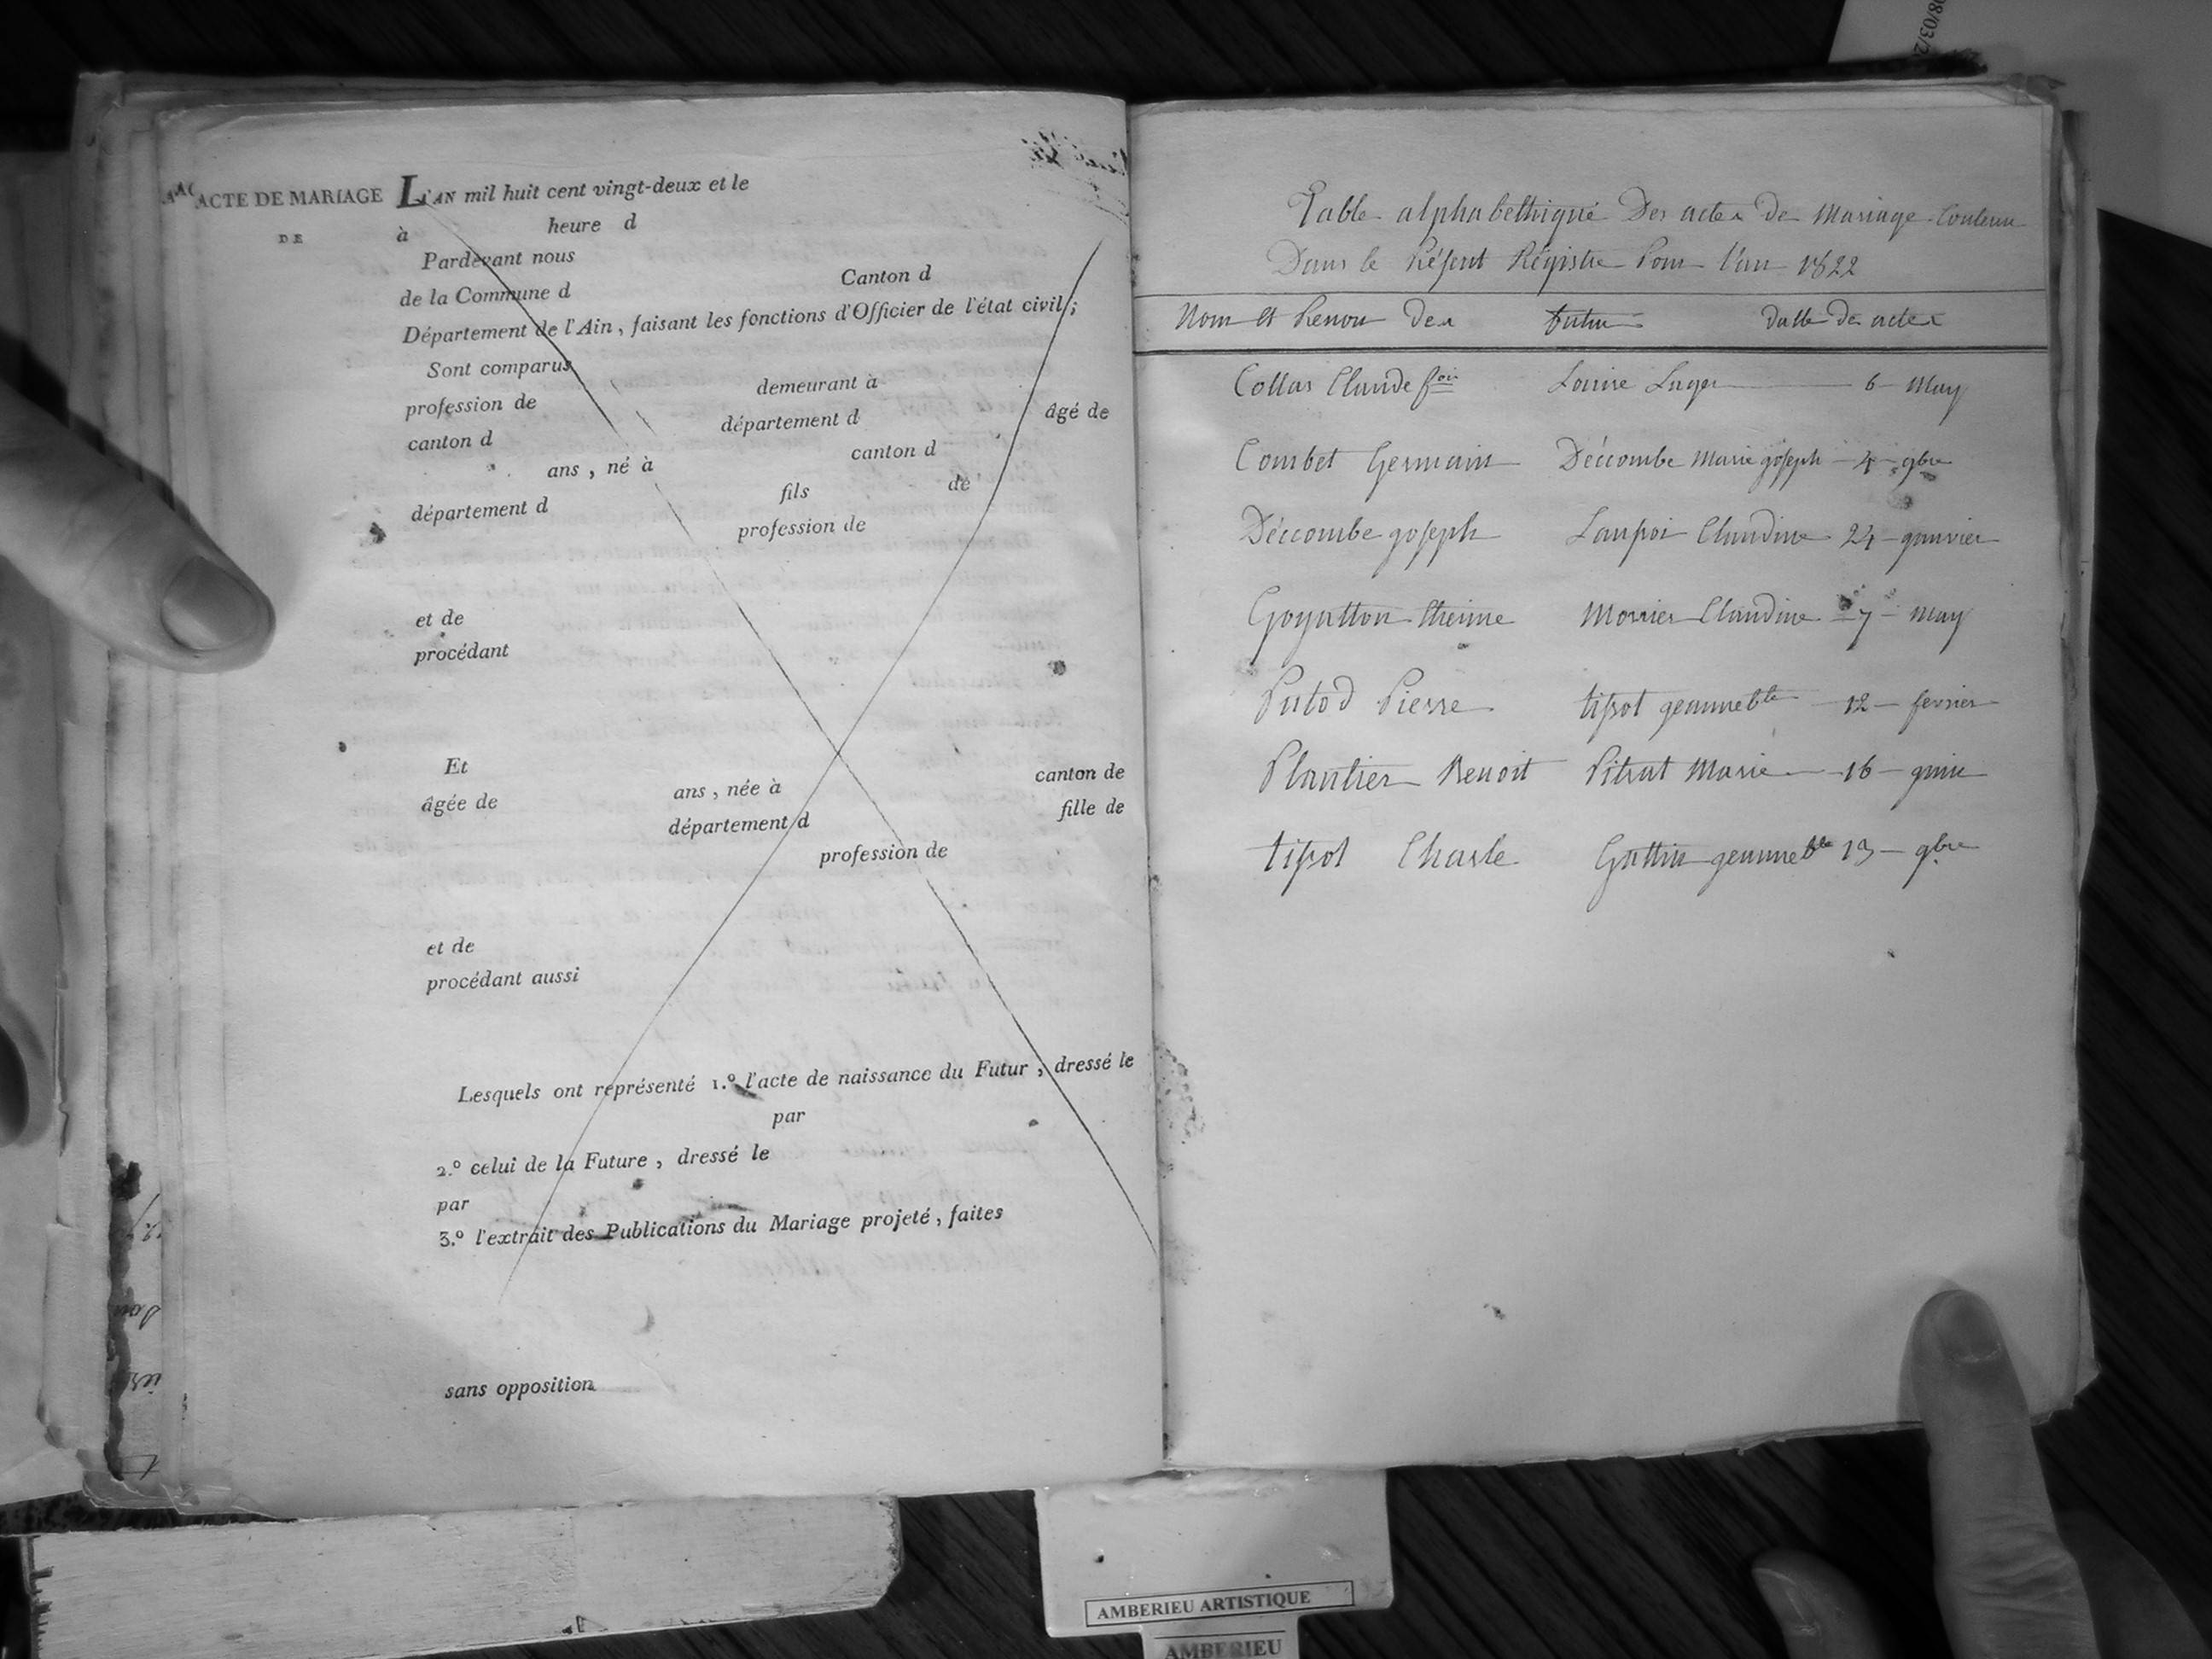 ACTE DE MARIAGE
DE
L'AN mil huit cent vingt-deux et le
à heure d
Pardevant nous
de la Commune d Canton d
Département de l'Ain, faisant les fonctions d'Officier de l'état civil;
Sont comparus
profession de demeurant à
canton d département d âgé de
ans, né à canton d
département d fils de
profession de
et de
procédant
Et
âgée de ans, née à canton de
département d fille de
profession de
et de
procédant aussi
Lesquels ont représenté 1.º l'acte de naissance du Futur, dressé le
par
2.º celui de la Future, dressé le
par
3.º l'extrait des Publications du Mariage projeté, faites
sans opposition
Table alphabethique Des actes De Mariage Contenu
Dans le Présent Régistre Pour l'an 1822
Nom et Prenom des futurs datte des actes
Collas Claude fois Louise 6 May
Combet Germain Déccombe Marie goseph 4 9bre
Déccombe goseph Claudine 24 ganvier
Goyatton Etienne Morrier Claudine 7 May
Putod Pierre tissot geanne btte 12 fevrier
Plantier Benoit Pitrat Marie 16 guin
tissot Charle Guttin geanne btte 13 9bre
08/03/2
AMBERIEU ARTISTIQUE
AMBERIEU